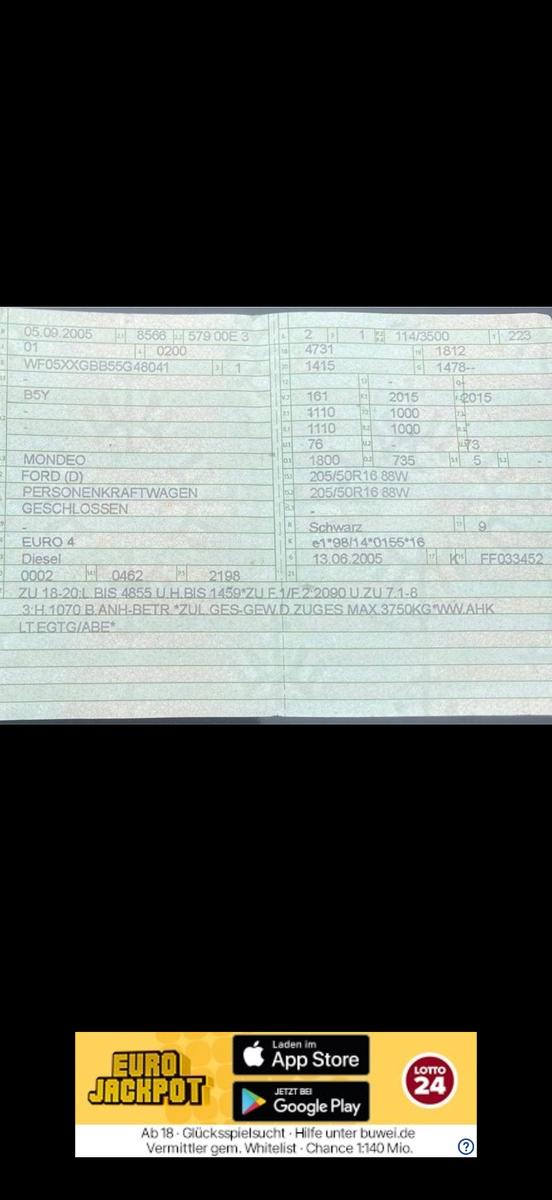 05.09.2005 8566 579 00E 3
01 0200
WF05XXGBB55G48041 1
-
B5Y
-
-
MONDEO
FORD (D)
PERSONENKRAFTWAGEN
GESCHLOSSEN
-
EURO 4
Diesel
0002 0462 2198
2 1 114/3500 223
4731 1812
1415 1478--
-
161 2015 2015
1110 1000
1110 1000
76 - 73
1800 735 5 -
205/50R16 88W
205/50R16 88W
-
Schwarz 9
e1*98/14*0155*16
13.06.2005 K FF033452
ZU 18-20:L.BIS 4855 U.H.BIS 1459*ZU F.1/F.2:2090 U.ZU 7.1-8
.3:H.1070 B.ANH-BETR.*ZUL.GES-GEW.D.ZUGES MAX.3750KG*WW.AHK
LT.EGTG/ABE*
EURO
JACKPOT
Laden im
App Store
JETZT BEI
Google Play
LOTTO
24
Ab 18 · Glücksspielsucht · Hilfe unter buwei.de
Vermittler gem. Whitelist · Chance 1:140 Mio.
?